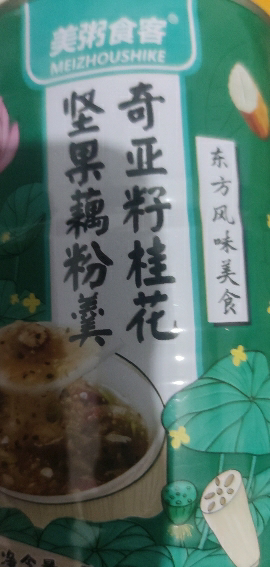 美粥食客®
MEIZHOUSHIKE
奇亚籽桂花
坚果藕粉羹
东方风味美食
净含量